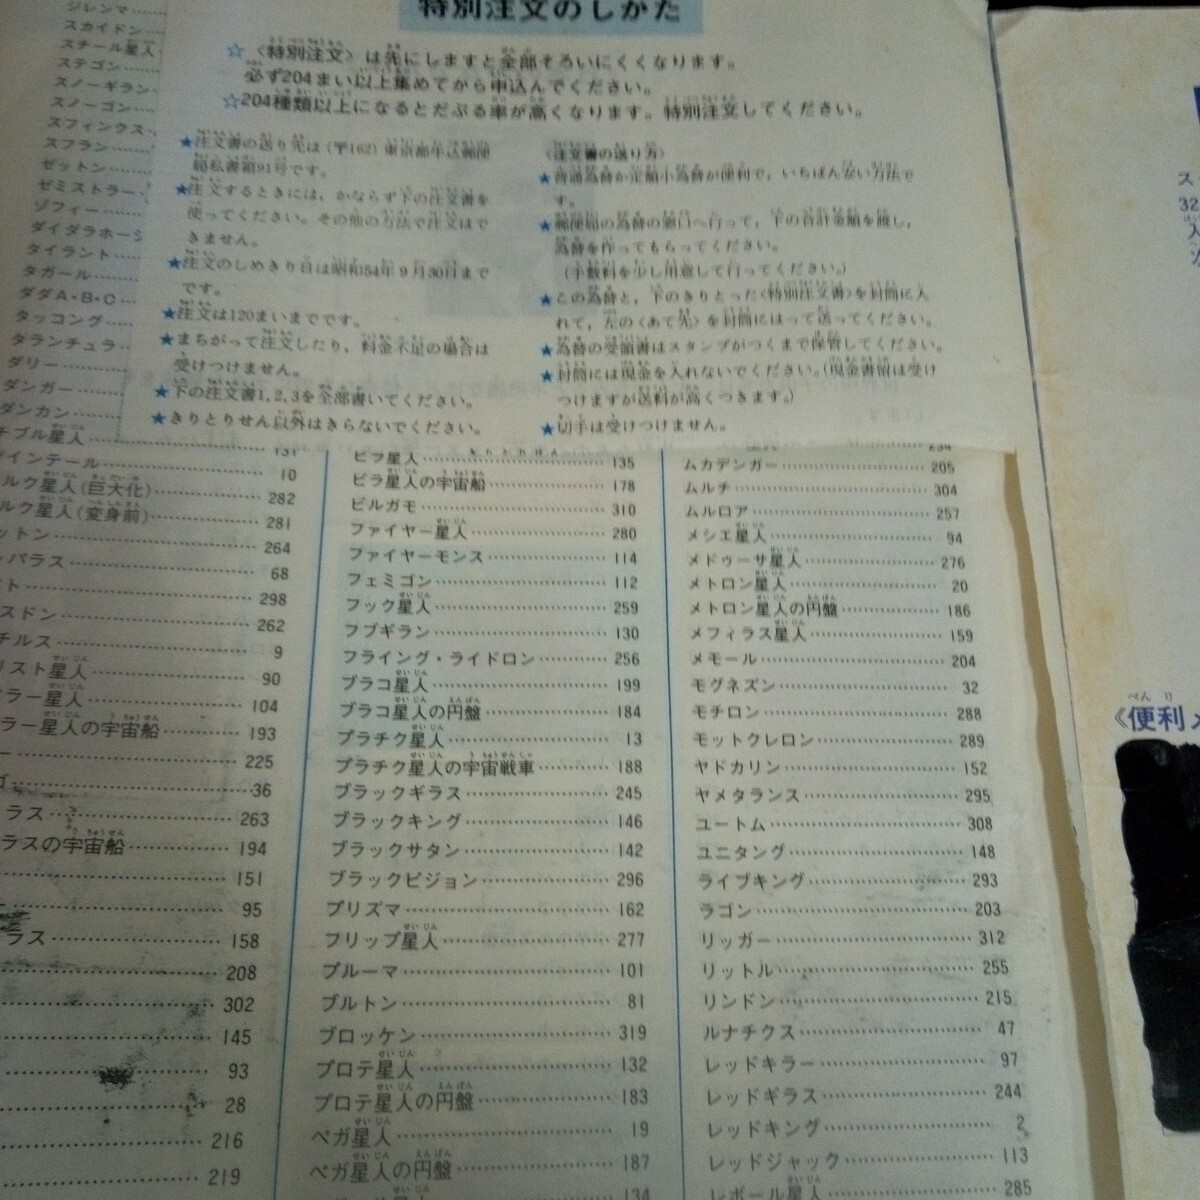 特別注文のしかた
☆〈特別注文〉は先にしますと全部そろいにくくなります。
必ず204まい以上集めてから申込んでください。
☆204種類以上になるとだぶる率が高くなります。特別注文してください。
★注文書の送り先は(〒162)東京都牛込郵便
局私書箱91号です。
★注文するときには、かならず下の注文書を
使ってください。その他の方法で注文はで
きません。
★注文のしめきり日は昭和54年9月30日まで
です。
★注文は120まいまでです。
★まちがって注文したり、料金不足の場合は
受けつけません。
★下の注文書1,2,3を全部書いてください。
★きりとりせん以外はきらないでください。
〈注文書の送り方〉
★普通為替か定額小為替が便利で、いちばん安い方法で
す。
★郵便局の為替の窓口へ行って、下の合計金額を渡し、
為替を作ってもらってください。
(手数料を少し用意して行ってください。)
★この為替と、下のきりとった〈特別注文書〉を封筒に入
れて、左の〈あて先〉を封筒にはって送ってください。
★為替の受領書はスタンプがつくまで保管してください。
★封筒には現金を入れないでください。(現金書留は受け
つけますが送料が高くつきます。)
★切手は受けつけません。
ジレンマ
スカイドン
スチール星人
ステゴン
スノーギラン
スノーゴン
スフィンクス
スフラン
ゼットン
ゼミストラー
ゾフィー
ダイダラホーシ
タイラント
タガール
ダダA・B・C
タッコング
タランチュラ
ダリー
ダンガー
ダンカン
チブル星人 131
ツインテール 10
ルク星人(巨大化) 282
ルク星人(変身前) 281
ットン 264
パラス 68
ト 298
スドン 262
チルス 9
リスト星人 90
ラー星人 104
ラー星人の宇宙船 193
ー 225
ゴ 36
ラス 263
ラスの宇宙船 194
151
95
ラス 158
208
302
145
93
28
216
219
ビラ星人 135
ビラ星人の宇宙船 178
ビルガモ 310
ファイヤー星人 280
ファイヤーモンス 114
フェミゴン 112
フック星人 259
フブギラン 130
フライング・ライドロン 256
ブラコ星人 199
ブラコ星人の円盤 184
プラチク星人 13
プラチク星人の宇宙戦車 188
ブラックギラス 245
ブラックキング 146
ブラックサタン 142
ブラックピジョン 296
プリズマ 162
フリップ星人 277
プルーマ 101
ブルトン 81
ブロッケン 319
プロテ星人 132
プロテ星人の円盤 183
ペガ星人 19
ペガ星人の円盤 187
134
234
ムカデンガー 205
ムルチ 304
ムルロア 257
メシエ星人 94
メドゥーサ星人 276
メトロン星人 20
メトロン星人の円盤 186
メフィラス星人 159
メモール 204
モグネズン 32
モチロン 288
モットクレロン 289
ヤドカリン 152
ヤメタランス 295
ユートム 308
ユニタング 148
ライブキング 293
ラゴン 203
リッガー 312
リットル 255
リンドン 215
ルナチクス 47
レッドキラー 97
レッドギラス 244
レッドキング 2
レッドジャック 113
レボール星人 285
ス
32
《便利